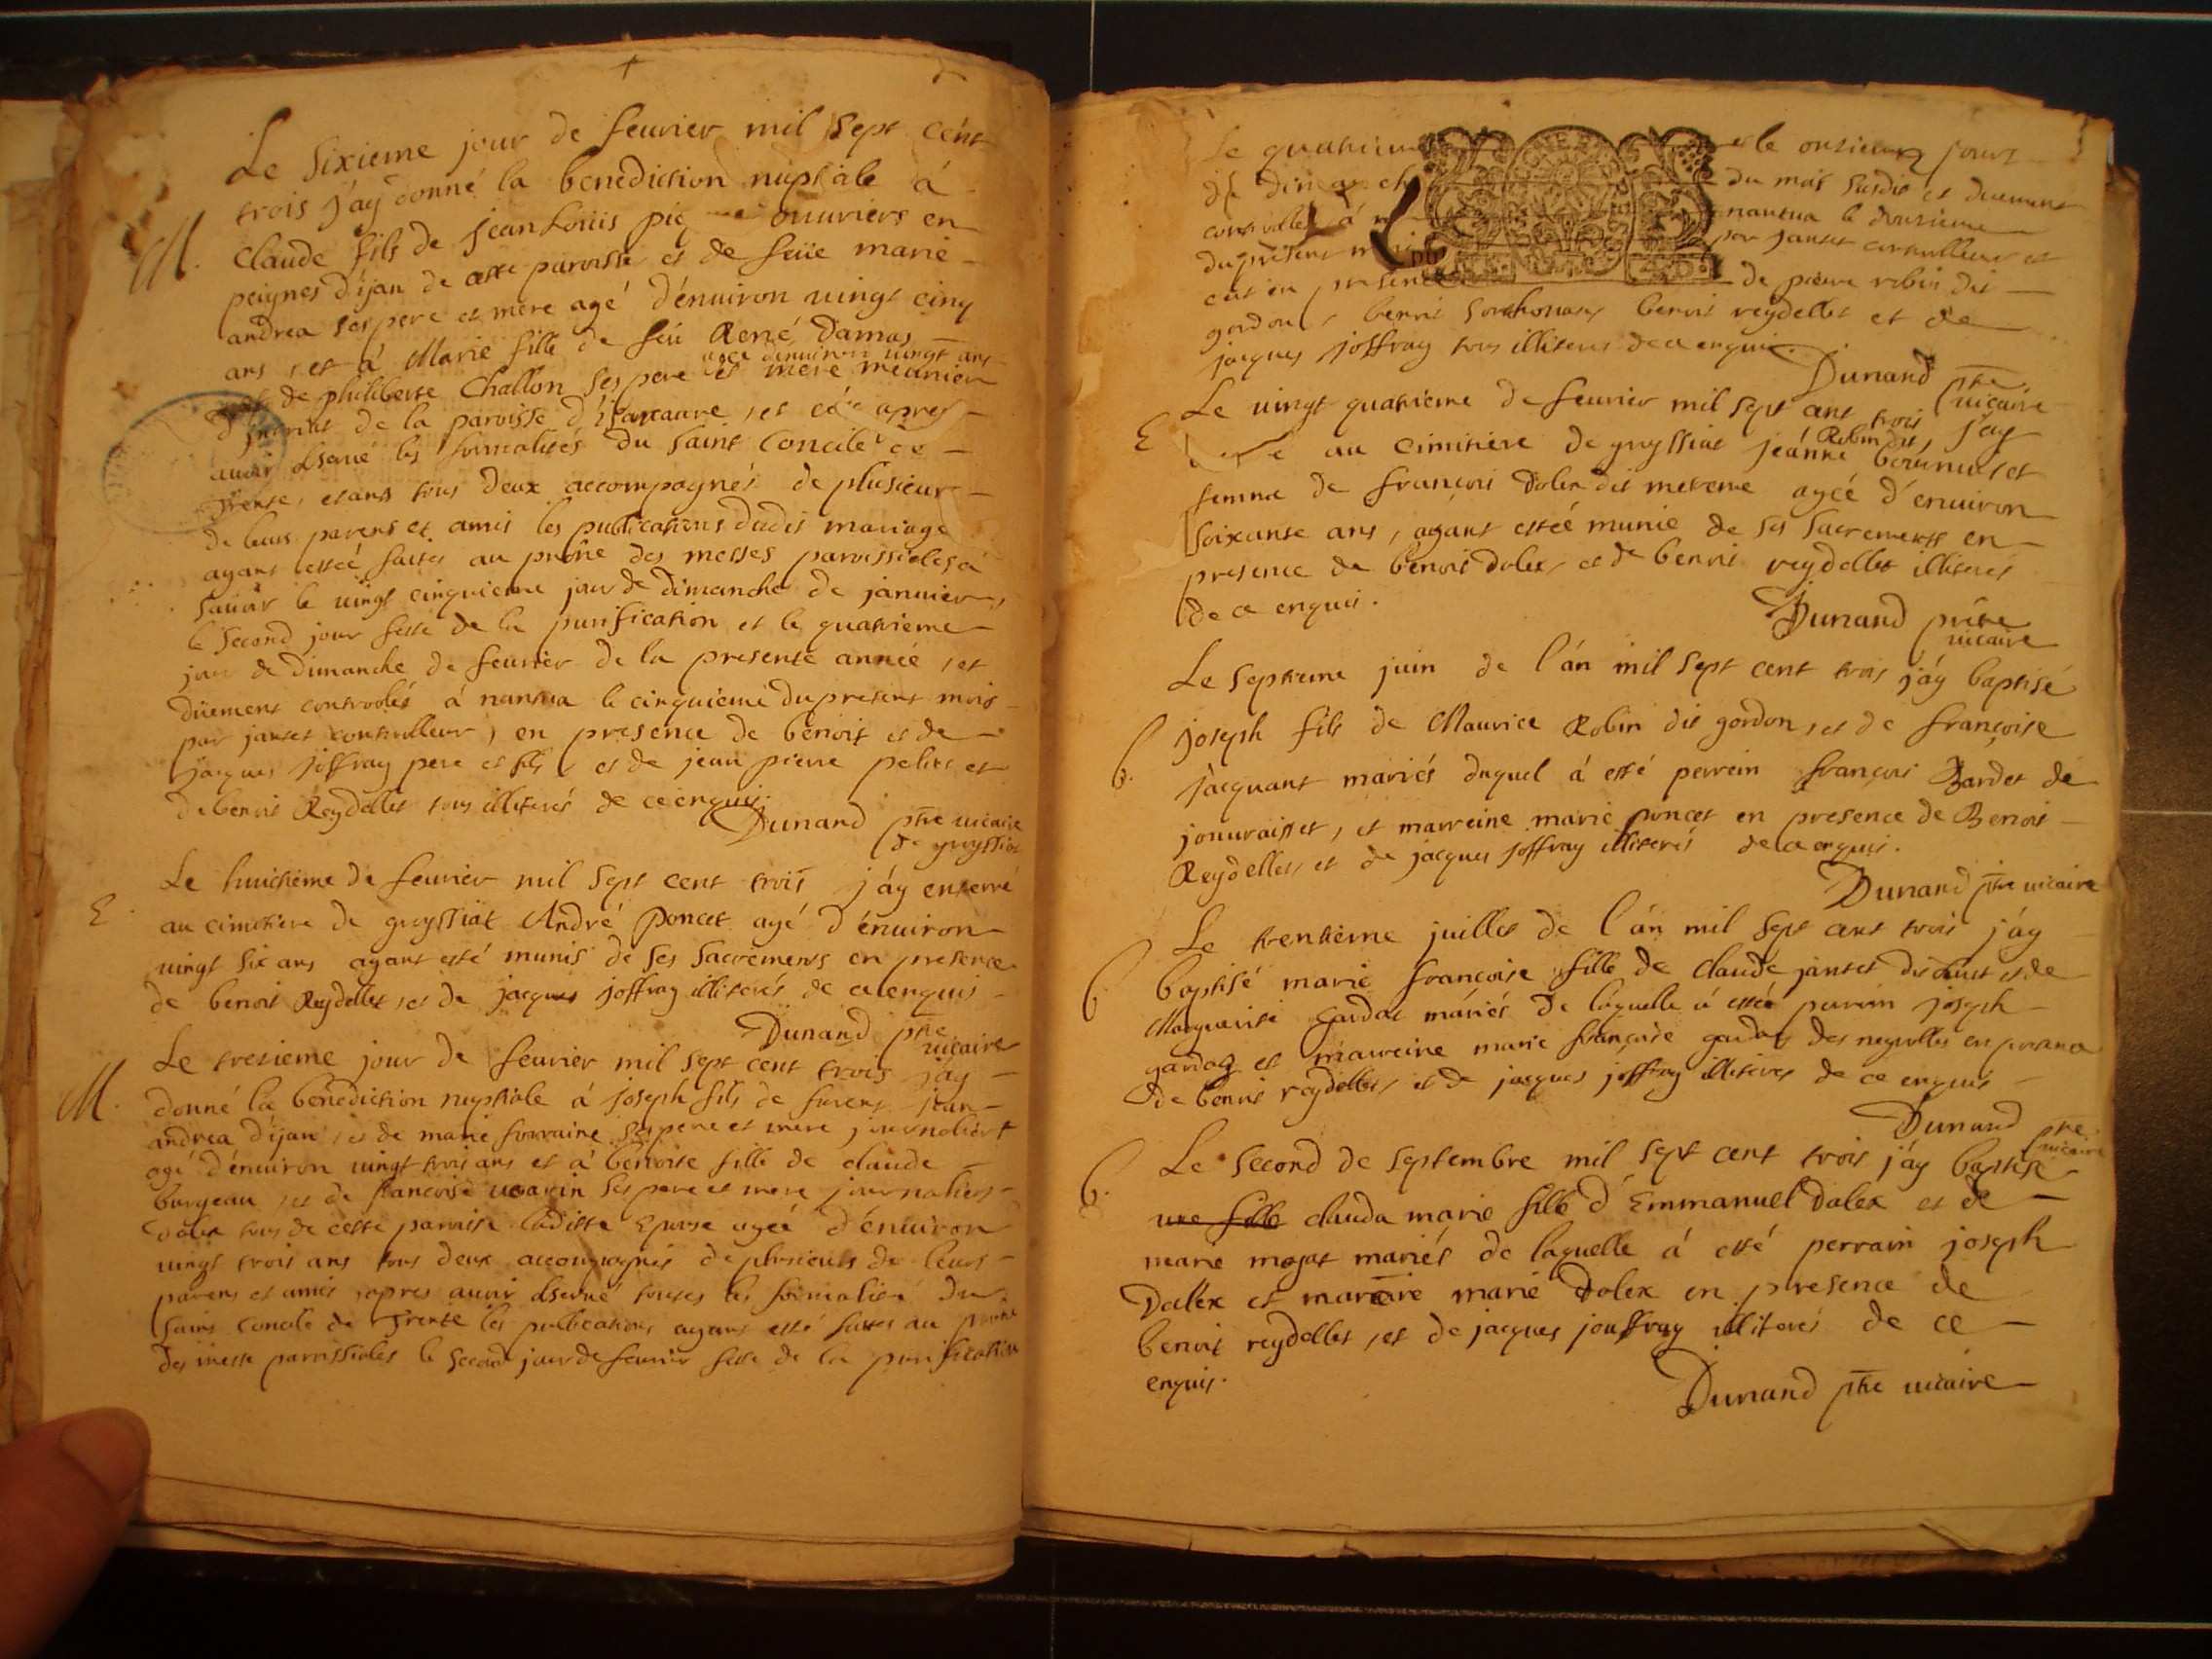 Le Sixieme jour de feurier mil Sept cent
trois j'áy donné la benediction nuptiale á
M. Claude fils de Jean Louis pic ouuriers en
peignes d'ijan de cette paroisse et de feüe marie
andrea ses pere et mere agé d'énuiron uingt cinq
ans, et á Marie fille de feü René Damas
agée denuiron uingt ans
et de philiberte Challon ses pere et mere meunier
de la paroisse et ce apres
auoir obserué les formalités du Saint Concile de
Trente, etants tous deux accompagnés de plusieurs
de leurs parens et amis les publications dudit mariage
ayant estéé faites au prône des messes paroissieles á
sauoir le uingt cinquieme jour de dimanche de januier,
le Second jour feste de la purification et le quatrieme
jour de dimanche de feurier de la presente année, et
düement controolés á nantua le cinquiemé du present mois
par jantet controlleur, en presence de benoit et de
jacques joffray pere et fils, et de jean pierre et
de benoit Reydellet tous illiterés de ce enquis.
Dunand ptre uicaire
de gryssiat
E. Le huictieme de feurier mil Sept cent trois j'áy enterré
au cimetiere de gryssiat André poncet agé d'énuiron
uingt six ans ayant esté munis de ses Sacréments en presence
de benoit Reydellet, et de jacques joffray illiterés de ce enquis
Dunand ptre
uicaire
M. Le tresieme jour de feurier mil Sept cent trois j'áy
donné la bénédiction nuptiale á joseph fils de jean
andrea d'ijan, et de marie ses pere et mere journaliers
agé d'énuiron uingt trois ans et á bénoite fille de claude
burgeau, et de francoise ses pere et mere journaliers
tous de cette paroisse laditte Epouse agéé d'énuiron
uingt trois ans tous deux accompagnés de plusieurs de leurs
parens et amis, apres auoir obserué toutes les formalités du
Saint Concile de Trente les publications ayant esté faites au prone
des messe paroissieles le Second jour de feurier feste de la purification
Le quatrieme et le onsieme jours
de dimanche du mois susdit et duement
controllés á nantua le dousieme
du présent mois par jantet controlleur et
ce en presence de pierre robin dit
gordon, benoit benoit reydellet et de
jacques joffray tous illiteres de ce enquis.
Dunand ptre
uicaire
E Le uingt quatrieme de feurier mil Sept cent trois j'áy
au cimitiere de gryssiat jeánne Robin dit
femme de françois Dolex dit agéé d'enuiron
soixante ans, ayant estéé munie de ses Sacrements en
presence de benoit dolex, et de benoit reydellet illiterés
de ce enquis.
Dunand prétre
uicaire
Le Septieme juin de l'án mil Sept cent trois j'áy baptisé
b. joseph fils de Maurice Robin dit gordon, et de françoise
jacquant mariés duquel á esté perrein françois Bardet de
jouuraisset, et marreine marie poncet en presence de Benoit
Reydellet, et de jacques joffray illiterés de ce enquis.
Dunand ptre uicaire
b. Le trentieme juillet de l'án mil Sept cent trois j'áy
baptisé marie françoise fille de claude jantet dit et de
Marguerite gardat máriés de laquelle á estéé parein joseph
gardat et marreine marie françoise gardat des neyrolles en presence
de benoit reydellet, et de jacques joffray illiterés de ce enquis
Dunand ptre
uicaire
b. Le Second de Septembre mil Sept cent trois j'áy baptisé
une fille clauda marie fille d'Emmanuel Dalex et de
marie mariés de laquelle á esté perrain joseph
Dallex et marie Dolex en presence de
benoit reydellet, et de jacques jouffray illiterés de ce
enquis.
Dunand ptre uicaire